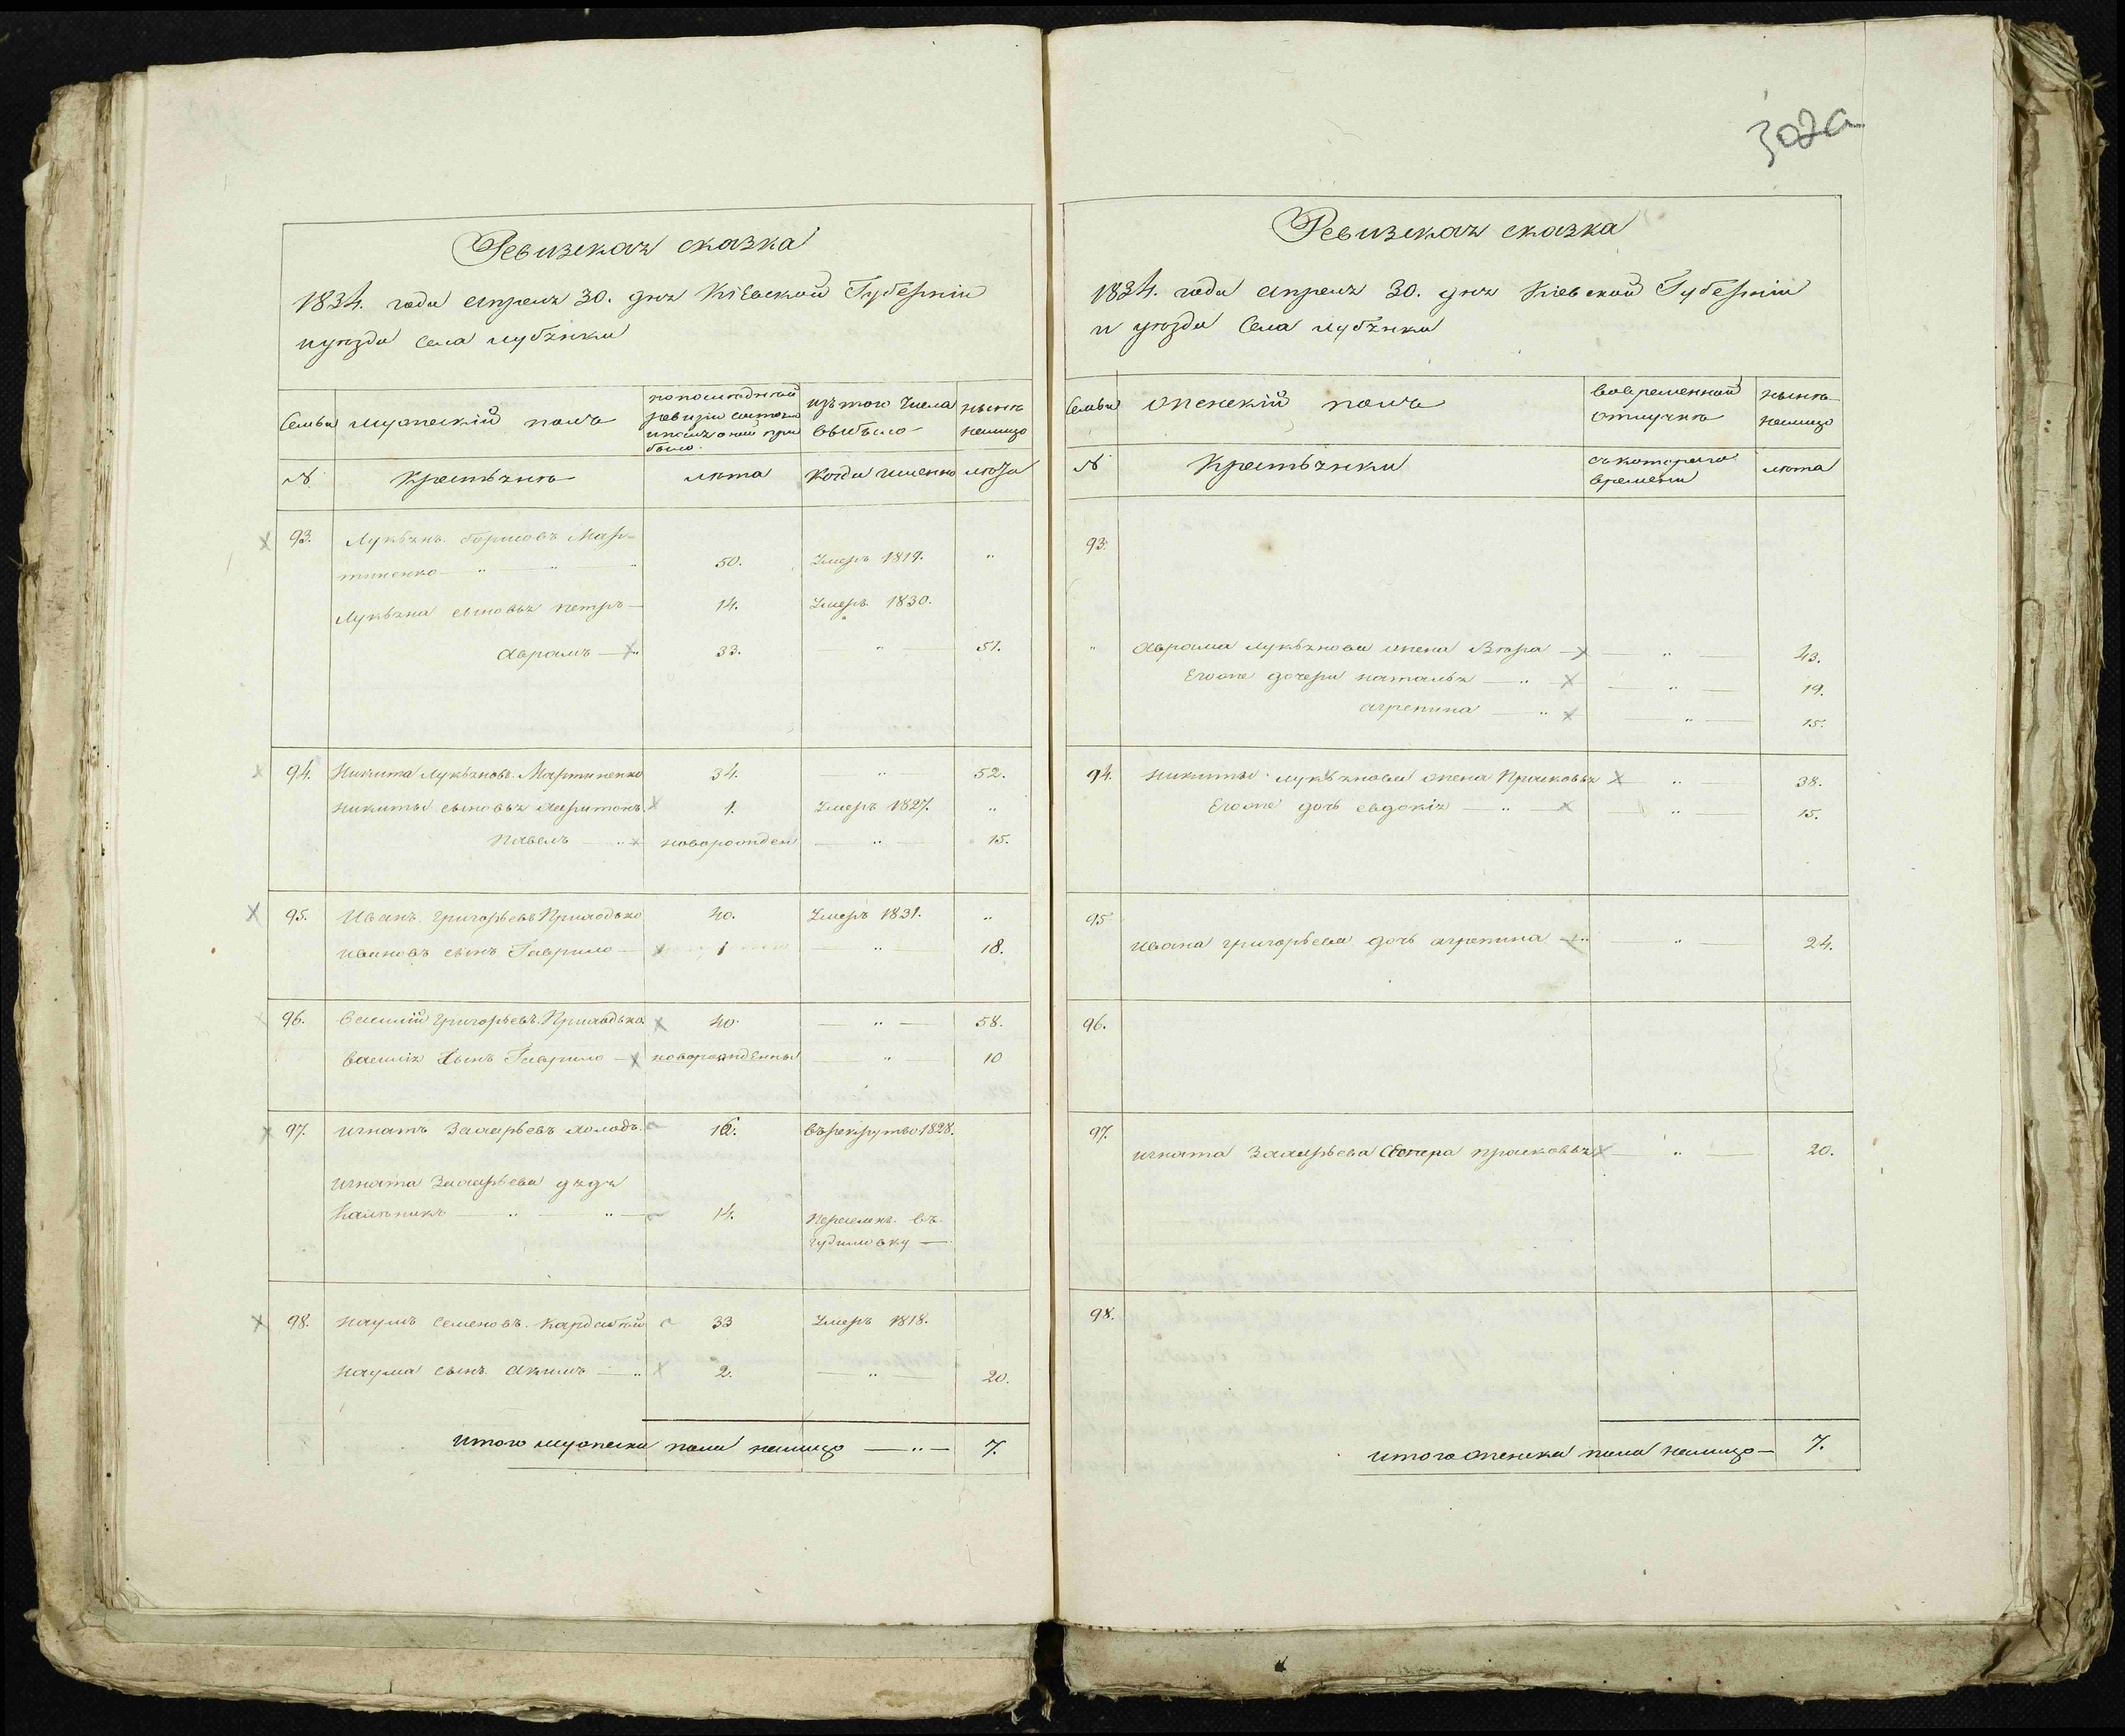 302а
Ревизская сказка
1834. года апреля 30. дня Кіевской Губерніи
и уезда села лубянки
Семьи мужескій полъ по последней ревизіи состояло и после оной прибыло изъ того числа выбыло ныне налицо
№ Крестьяне лета когда именно лета
93. Лукьянъ Мар-
тиненко 50. Умеръ 1819. "
Лукьяна сыновья петръ 14. Умеръ 1830.
аврамъ 33. " 51.
94. Никита Лукьяновъ Мартиненко 34. " 52.
никиты сыновья 1. Умеръ 1827. "
Павелъ новорожден " 15.
95. Иванъ григорьевъ Приходько 40. Умеръ 1831. "
ивановъ сынъ Гаврило 1 " 18.
96. Василій григорьевъ Приходько 40. " 58.
василія сынъ Гаврило новорожденны " 10
97. игнатъ Захарьевъ холодъ 16. въ рекруты 1828.
игната Захарьева дядя
14. Переселенъ въ
98. наумъ семеновъ 33 Умеръ 1818.
наума сынъ акимъ 2. " 20.
итого мужеска пола налицо " 7.
Ревизская сказка
1834. года апреля 30. дня Кіевской Губерніи
и уезда села лубянки
Семьи женскій полъ во временной отлучке ныне налицо
№ Крестьянки съ котораго времени лета
93.
" аврама лукьянова жена Вера " 43.
Егоже дочери наталья " 19.
агрепина " 15.
94. никиты лукьянова жена Прасковья " 38.
Егоже дочь евдокія " 15.
95
ивана григорьева дочь агрепина " 24.
96.
97.
игната Захарьева Сестра прасковья " 20.
98.
итого женска пола налицо 7.